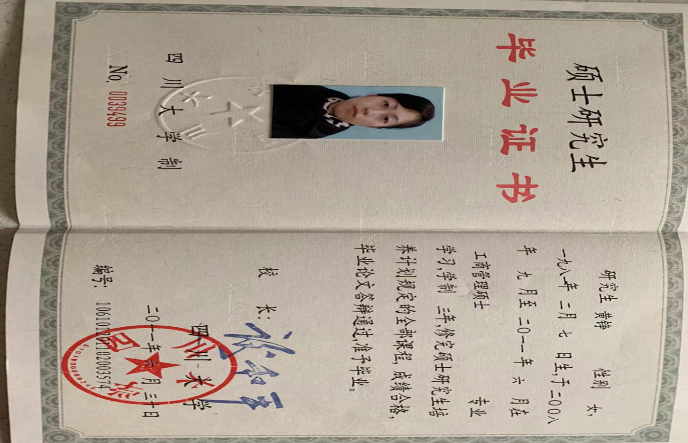 硕士研究生
毕业证书
四川大学制
No. 0039499
研究生 黄铮 性别 女,
一九八一年 二月 七 日生,于二〇〇八
年 九 月至 二〇一一年 六 月在
工商管理硕士 专业
学习,学制 三年,修完硕士研究生培
养计划规定的全部课程,成绩合格,
毕业论文答辩通过,准予毕业。
校 长:
四川大学
二〇一一年 六 月 三十日
编号: